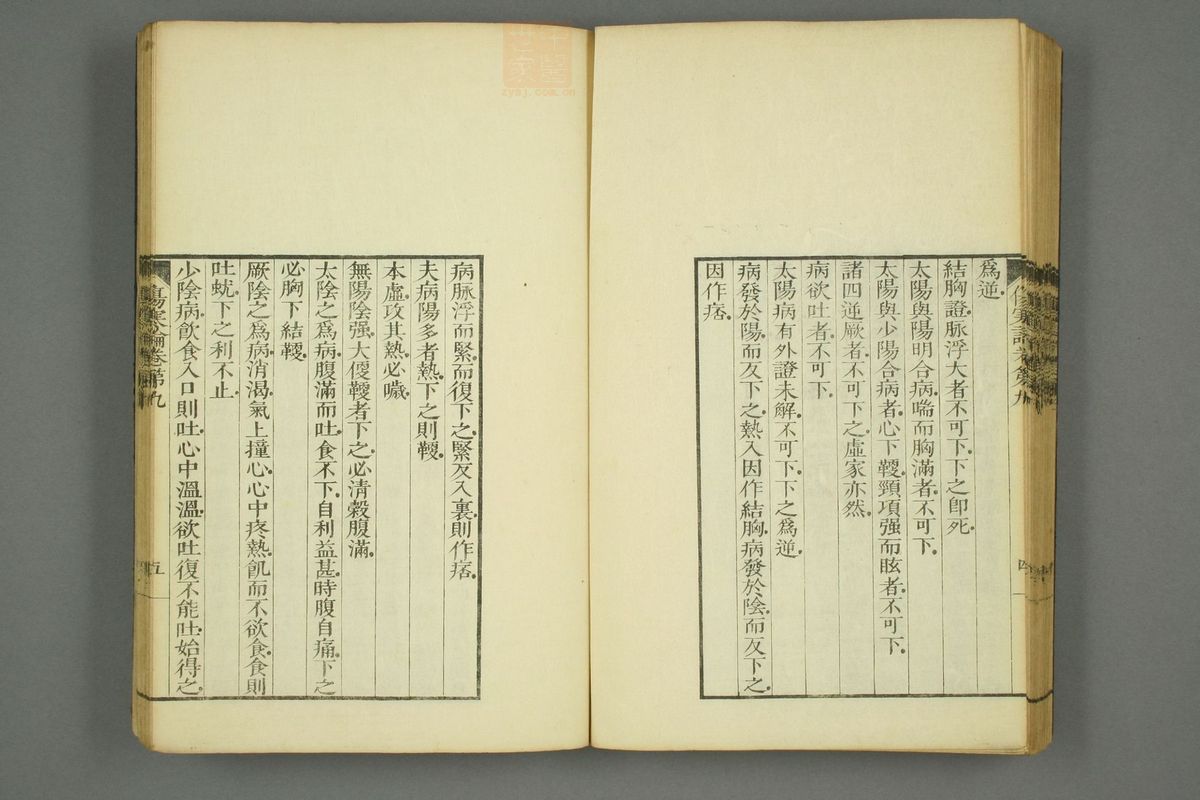 爲逆。
結胸證。脉浮大者不可下。下之卽死。
太陽與陽明合病。喘而胸滿者。不可下。
太陽與少陽合病者。心下鞕。頸項强而眩者。不可下。
諸四逆厥者。不可下之。虛家亦然。
病欲吐者。不可下。
太陽病有外證未解。不可下。下之爲逆。
病發於陽。而反下之。熱入因作結胸。病發於陰。而反下之。
因作痞。
病脉浮而緊。而復下之。緊反入裏。則作痞。
夫病陽多者熱。下之則鞕。
本虛。攻其熱必噦。
無陽陰强。大便鞕者下之。必淸穀腹滿。
太陰之爲病。腹滿而吐。食不下。自利益甚。時腹自痛。下之
必胸下結鞕。
厥陰之爲病。消渴。氣上撞心。心中疼熱。飢而不欲食。食則
吐蚘。下之利不止。
少陰病。飮食入口則吐。心中溫溫。欲吐復不能吐。始得之。
傷寒論卷第九
五
傷寒論卷第九
四
zysj.com.cn